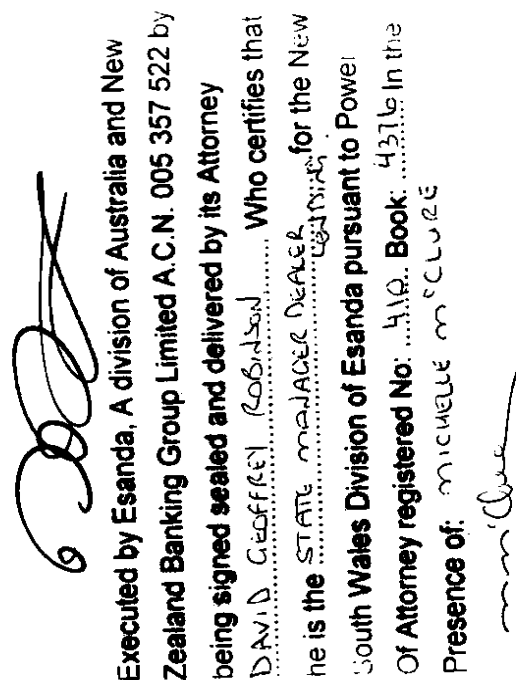 Executed by Esanda, A division of Australia and New
Zealand Banking Group Limited A.C.N. 005 357 522 by
being signed sealed and delivered by its Attorney
DAVID GEOFFREY ROBINSON Who certifies that
he is the STATE MANAGER DEALER LENDING for the New
South Wales Division of Esanda pursuant to Power
Of Attorney registered No: 410 Book: 4376 In the
Presence of: MICHELLE McCLURE
m m'Clure